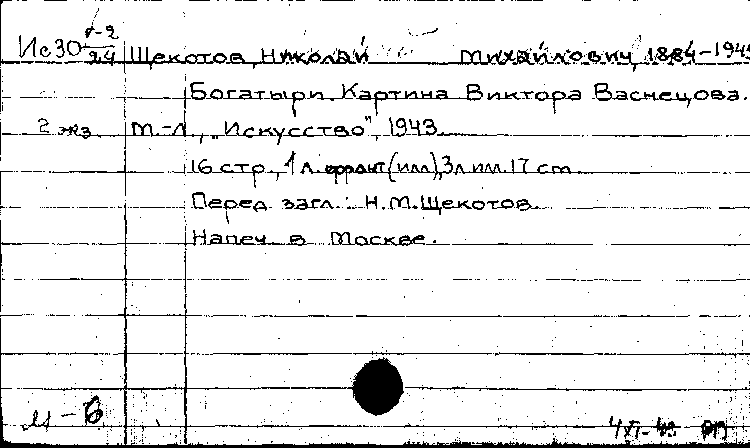 Ис30 г-2/24 Щекотов, Николай Михайлович, 1884-194
Богатыри. Картина Виктора Васнецова.
2 экз. М.-Л., „Искусство", 1943.
16 стр., 1 л. фронт (илл), 3 л. ил. 17 cm.
Перед загл.: Н.М.Щекотов.
Напеч. в Москве.
М-6